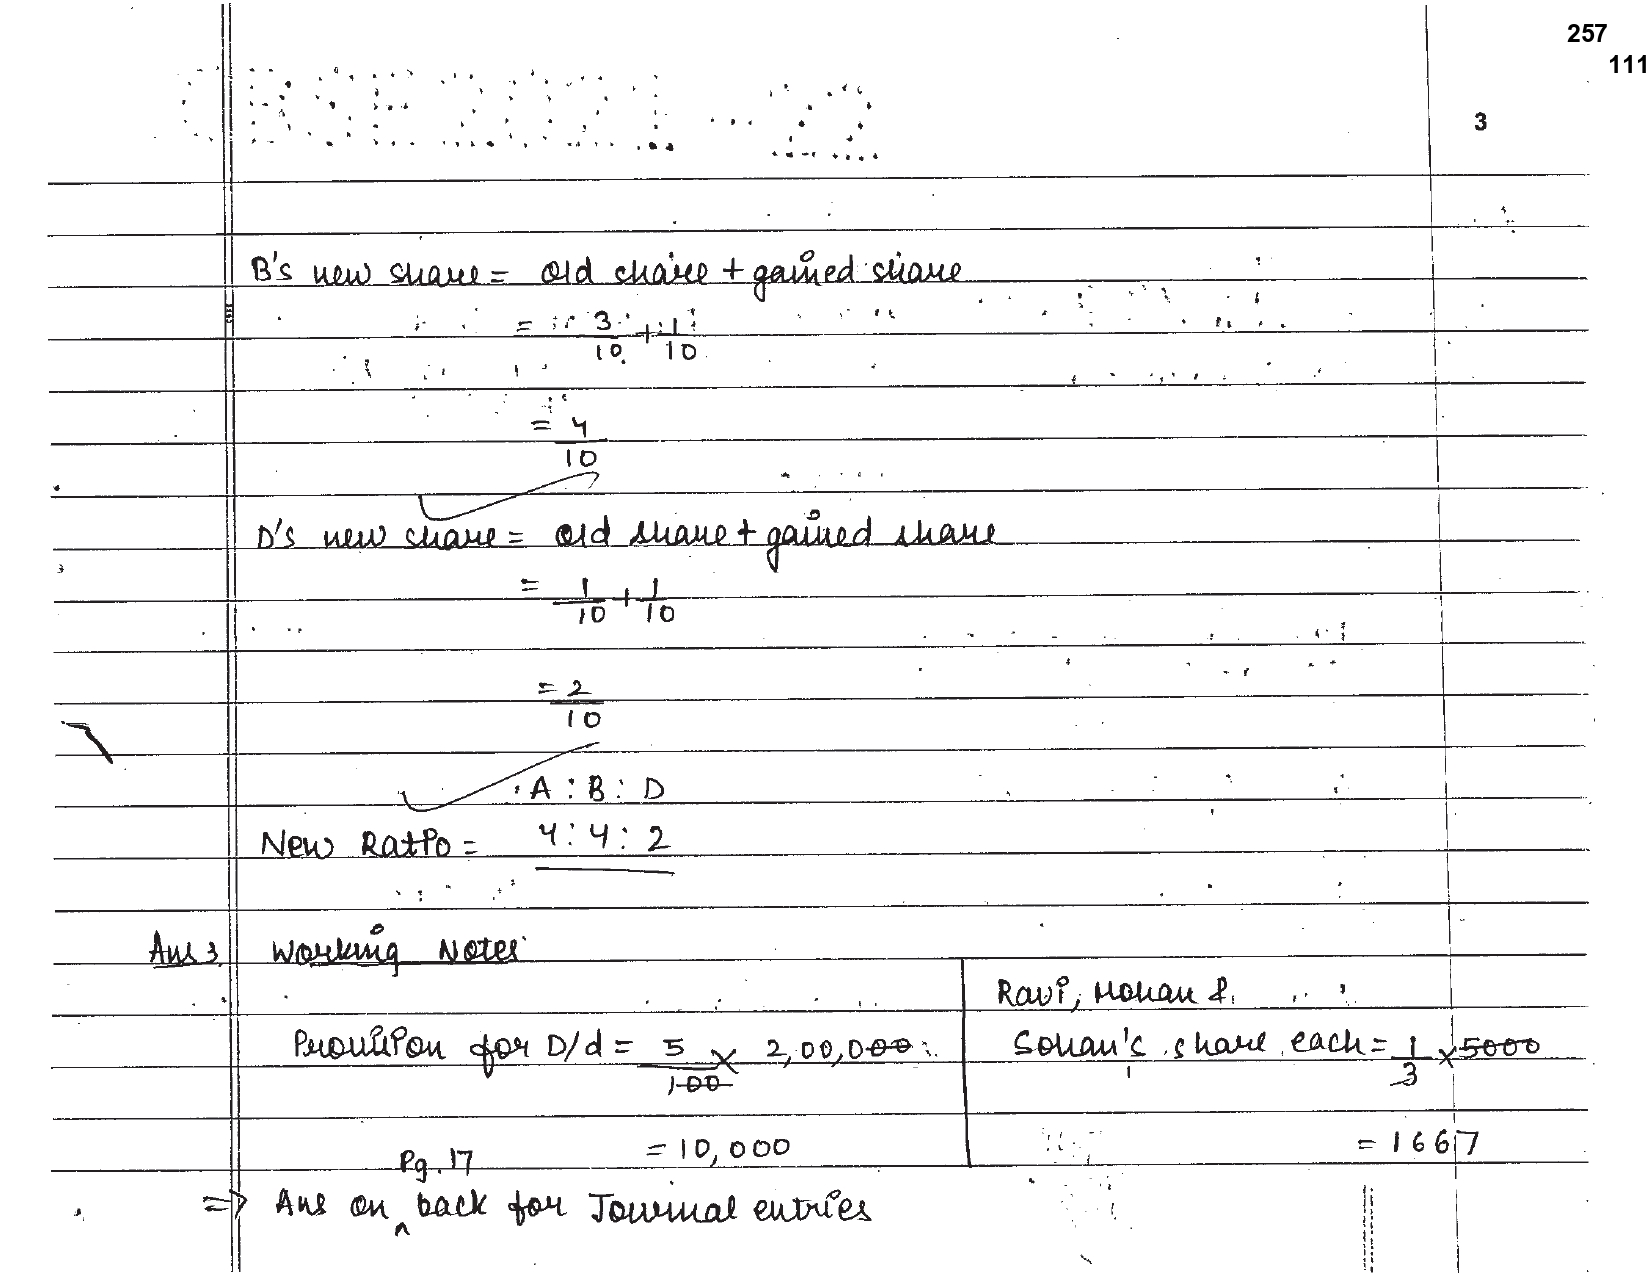 257
111
CBSE 2021-22
3
B's new share = old share + gained share
= 3/10 + 1/10
= 4/10
D's new share = old share + gained share
= 1/10 + 1/10
= 2/10
A : B : D
New Ratio = 4 : 4 : 2
Ans 3. Working Notes
Provision for D/d = 5/100 × 2,00,000
= 10,000
Ravi, Mohan &
Sohan's share each = 1/3 × 5000
= 1667
Pg. 17
⇒ Ans on ^ back for Journal entries